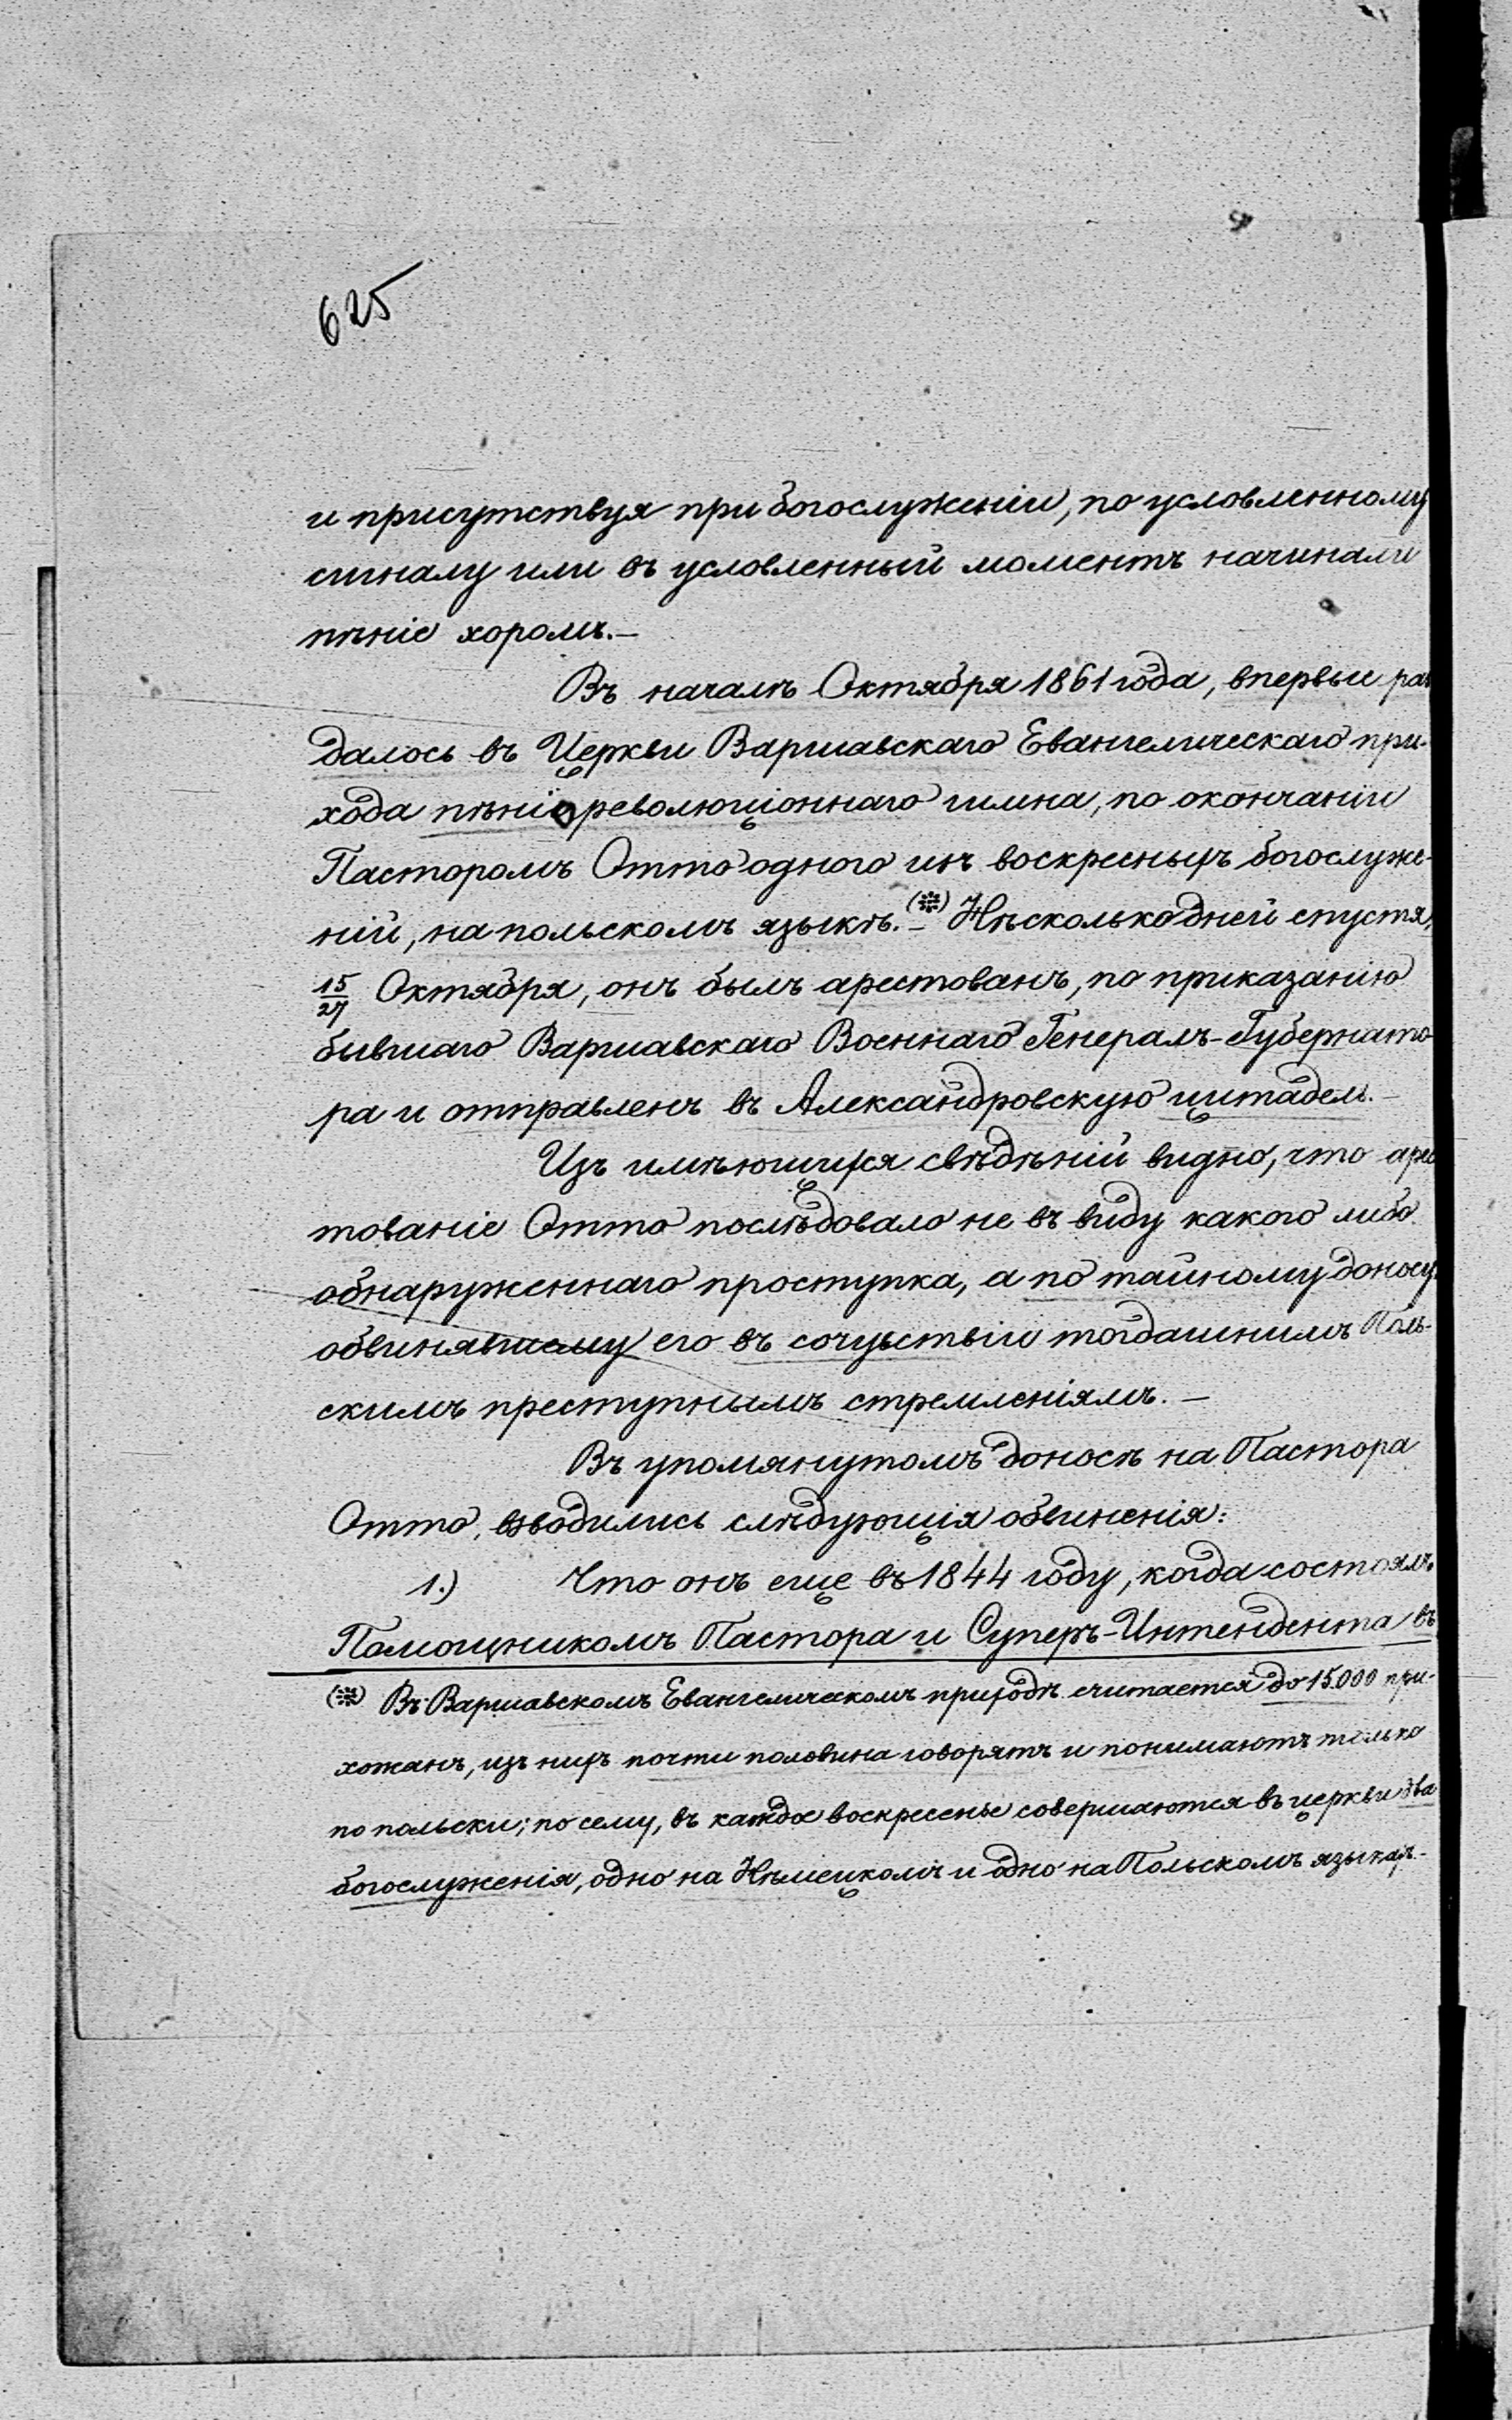 625
и присутствуя при богослуженіи, по условленному
сигналу или въ условленный моментъ начинали
пѣніе хоромъ.—
Въ началѣ Октября 1861 года, впервые раз
далось въ Церкви Варшавскаго Евангелическаго при-
хода пѣніе революціоннаго гимна, по окончаніи
Пасторомъ Отто одного изъ воскресныхъ богослуже-
ній, на польскомъ языкѣ.(*)— Нѣсколько дней спустя,
15/27 Октября, онъ былъ арестованъ, по приказанію
бывшаго Варшавскаго Военнаго Генералъ-Губернато-
ра и отправленъ въ Александровскую цитадель.—
Изъ имѣющихся свѣдѣній видно, что арес
тованіе Отто послѣдовало не въ виду какого либо
обнаруженнаго проступка, а по тайному доносу
обвинявшему его въ сочуствіи тогдашнимъ Поль-
скимъ преступнымъ стремленіямъ.—
Въ упомянутомъ доносѣ на Пастора
Отто, взводились слѣдующія обвиненія:
1.) Что онъ еще въ 1844 году, когда состоялъ
Помощникомъ Пастора и Суперъ-Интендента въ
(*) Въ Варшавскомъ Евангелическомъ приходѣ считается до 15.000 при-
хожанъ, изъ нихъ почти половина говорятъ и понимаютъ только
по польски; по сему, въ каждое воскресенье совершаются въ церкви два
богослуженія, одно на Нѣмецкомъ и одно на Польскомъ языкахъ.—